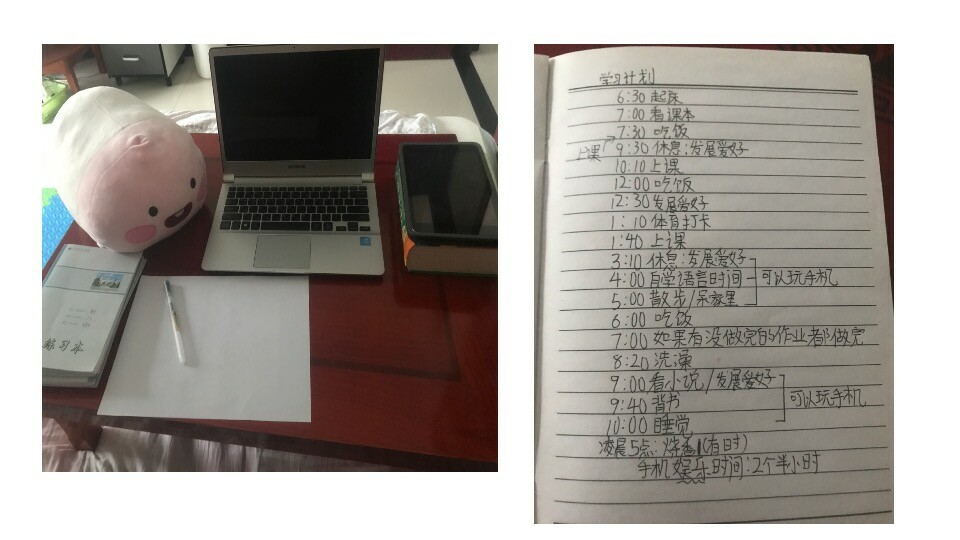 练习本
学习计划
6:30 起床
7:00 看课本
7:30 吃饭
上课
9:30 休息:发展爱好
10:10 上课
12:00 吃饭
12:30 发展爱好
1:10 体育打卡
1:40 上课
3:10 休息:发展爱好
4:00 自学语言时间
可以玩手机
5:00 散步/呆家里
6:00 吃饭
7:00 如果有没做完的作业都做完
8:20 洗澡
9:00 看小说/发展爱好
9:40 背书
可以玩手机
10:00 睡觉
凌晨5点: 烧香(有时)
手机娱乐时间:2个半小时